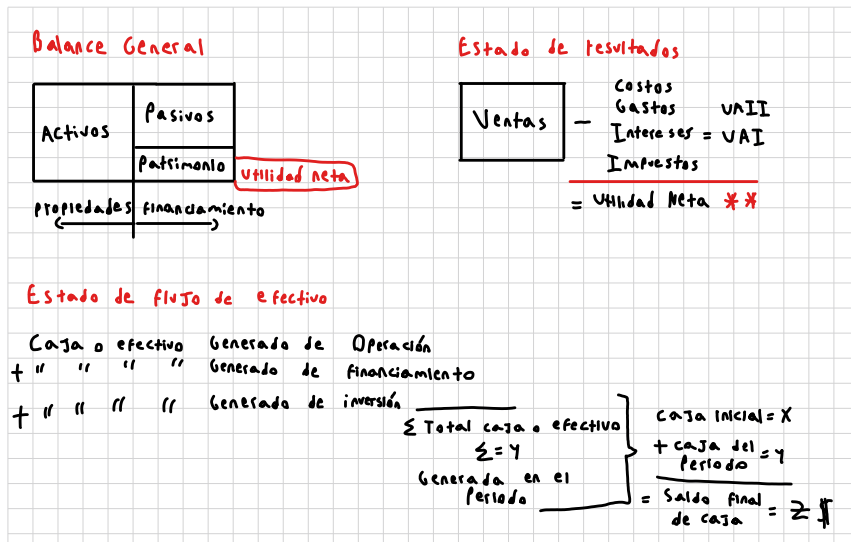 Balance General
Activos
Pasivos
Patrimonio
Utilidad neta
Propiedades financiamiento
Estado de resultados
Ventas -
Costos
Gastos UAII
Intereses = UAI
Impuestos
= Utilidad Neta **
Estado de flujo de efectivo
Caja o efectivo Generado de Operación
+ " " " " Generado de financiamiento
+ " " " " Generado de inversión
Σ Total caja o efectivo
Σ = Y
Generada en el
Periodo
Caja inicial = X
+ caja del
Periodo = Y
= Saldo final
de caja = Z $